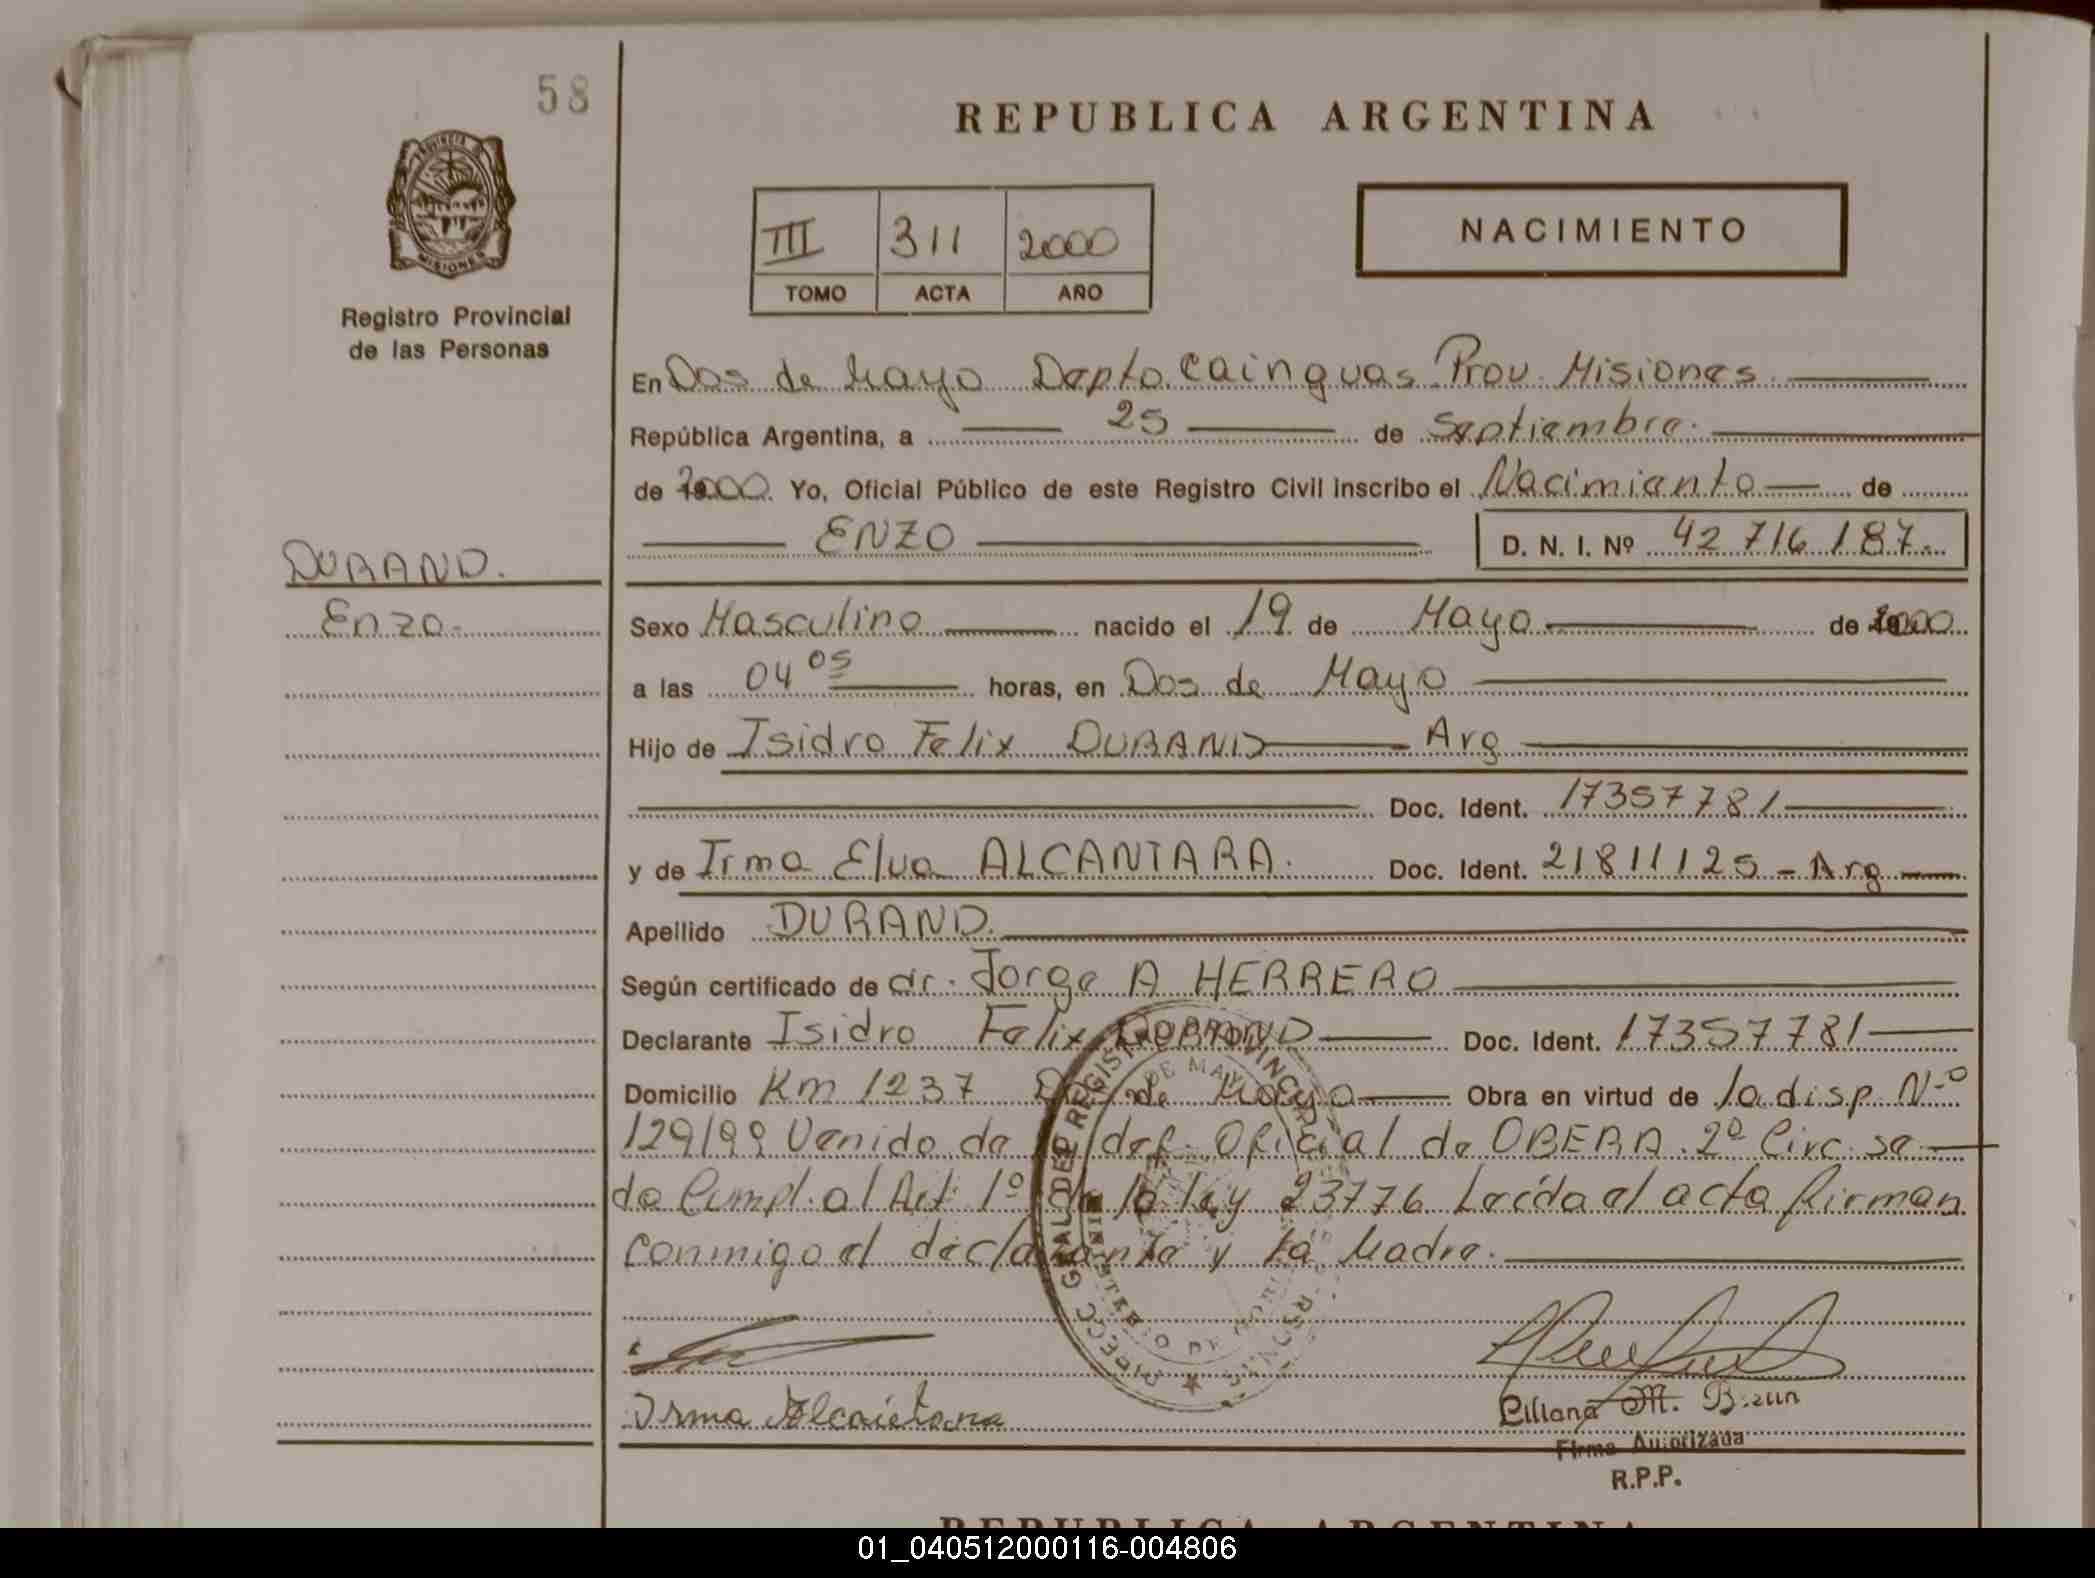 58
PROVINCIA DE
MISIONES
Registro Provincial
de las Personas
REPUBLICA ARGENTINA
III 311 2000
TOMO ACTA AÑO
NACIMIENTO
En Dos de Mayo Depto. Cainguas Prov. Misiones.
República Argentina, a 25 de Septiembre.
de 2000. Yo, Oficial Público de este Registro Civil inscribo el Nacimiento de
ENZO D. N. I. Nº 42 716 187.
DURAND.
Enzo.
Sexo Masculino nacido el 19 de Mayo de 2000
a las 04 05 horas, en Dos de Mayo
Hijo de Isidro Felix DURAND Arg
Doc. Ident. 17357781
y de Irma Elva ALCANTARA. Doc. Ident. 21811125 - Arg
Apellido DURAND.
Según certificado de dr. Jorge A HERRERO
Declarante Isidro Felix DURAND Doc. Ident. 17357781
Domicilio Km 1237 Dos de Mayo Obra en virtud de la disp. Nº
129/99 Venido de def. Oficial de OBERA 2º Circ. se
da Cumpl. al Art. 1º de la ley 23776 Leída el acta firman
conmigo el declarante y la Madre.
Irma Alcantara
Liliana M. Braun
Firma Autorizada
R.P.P.
REPUBLICA ARGENTINA
01_040512000116-004806